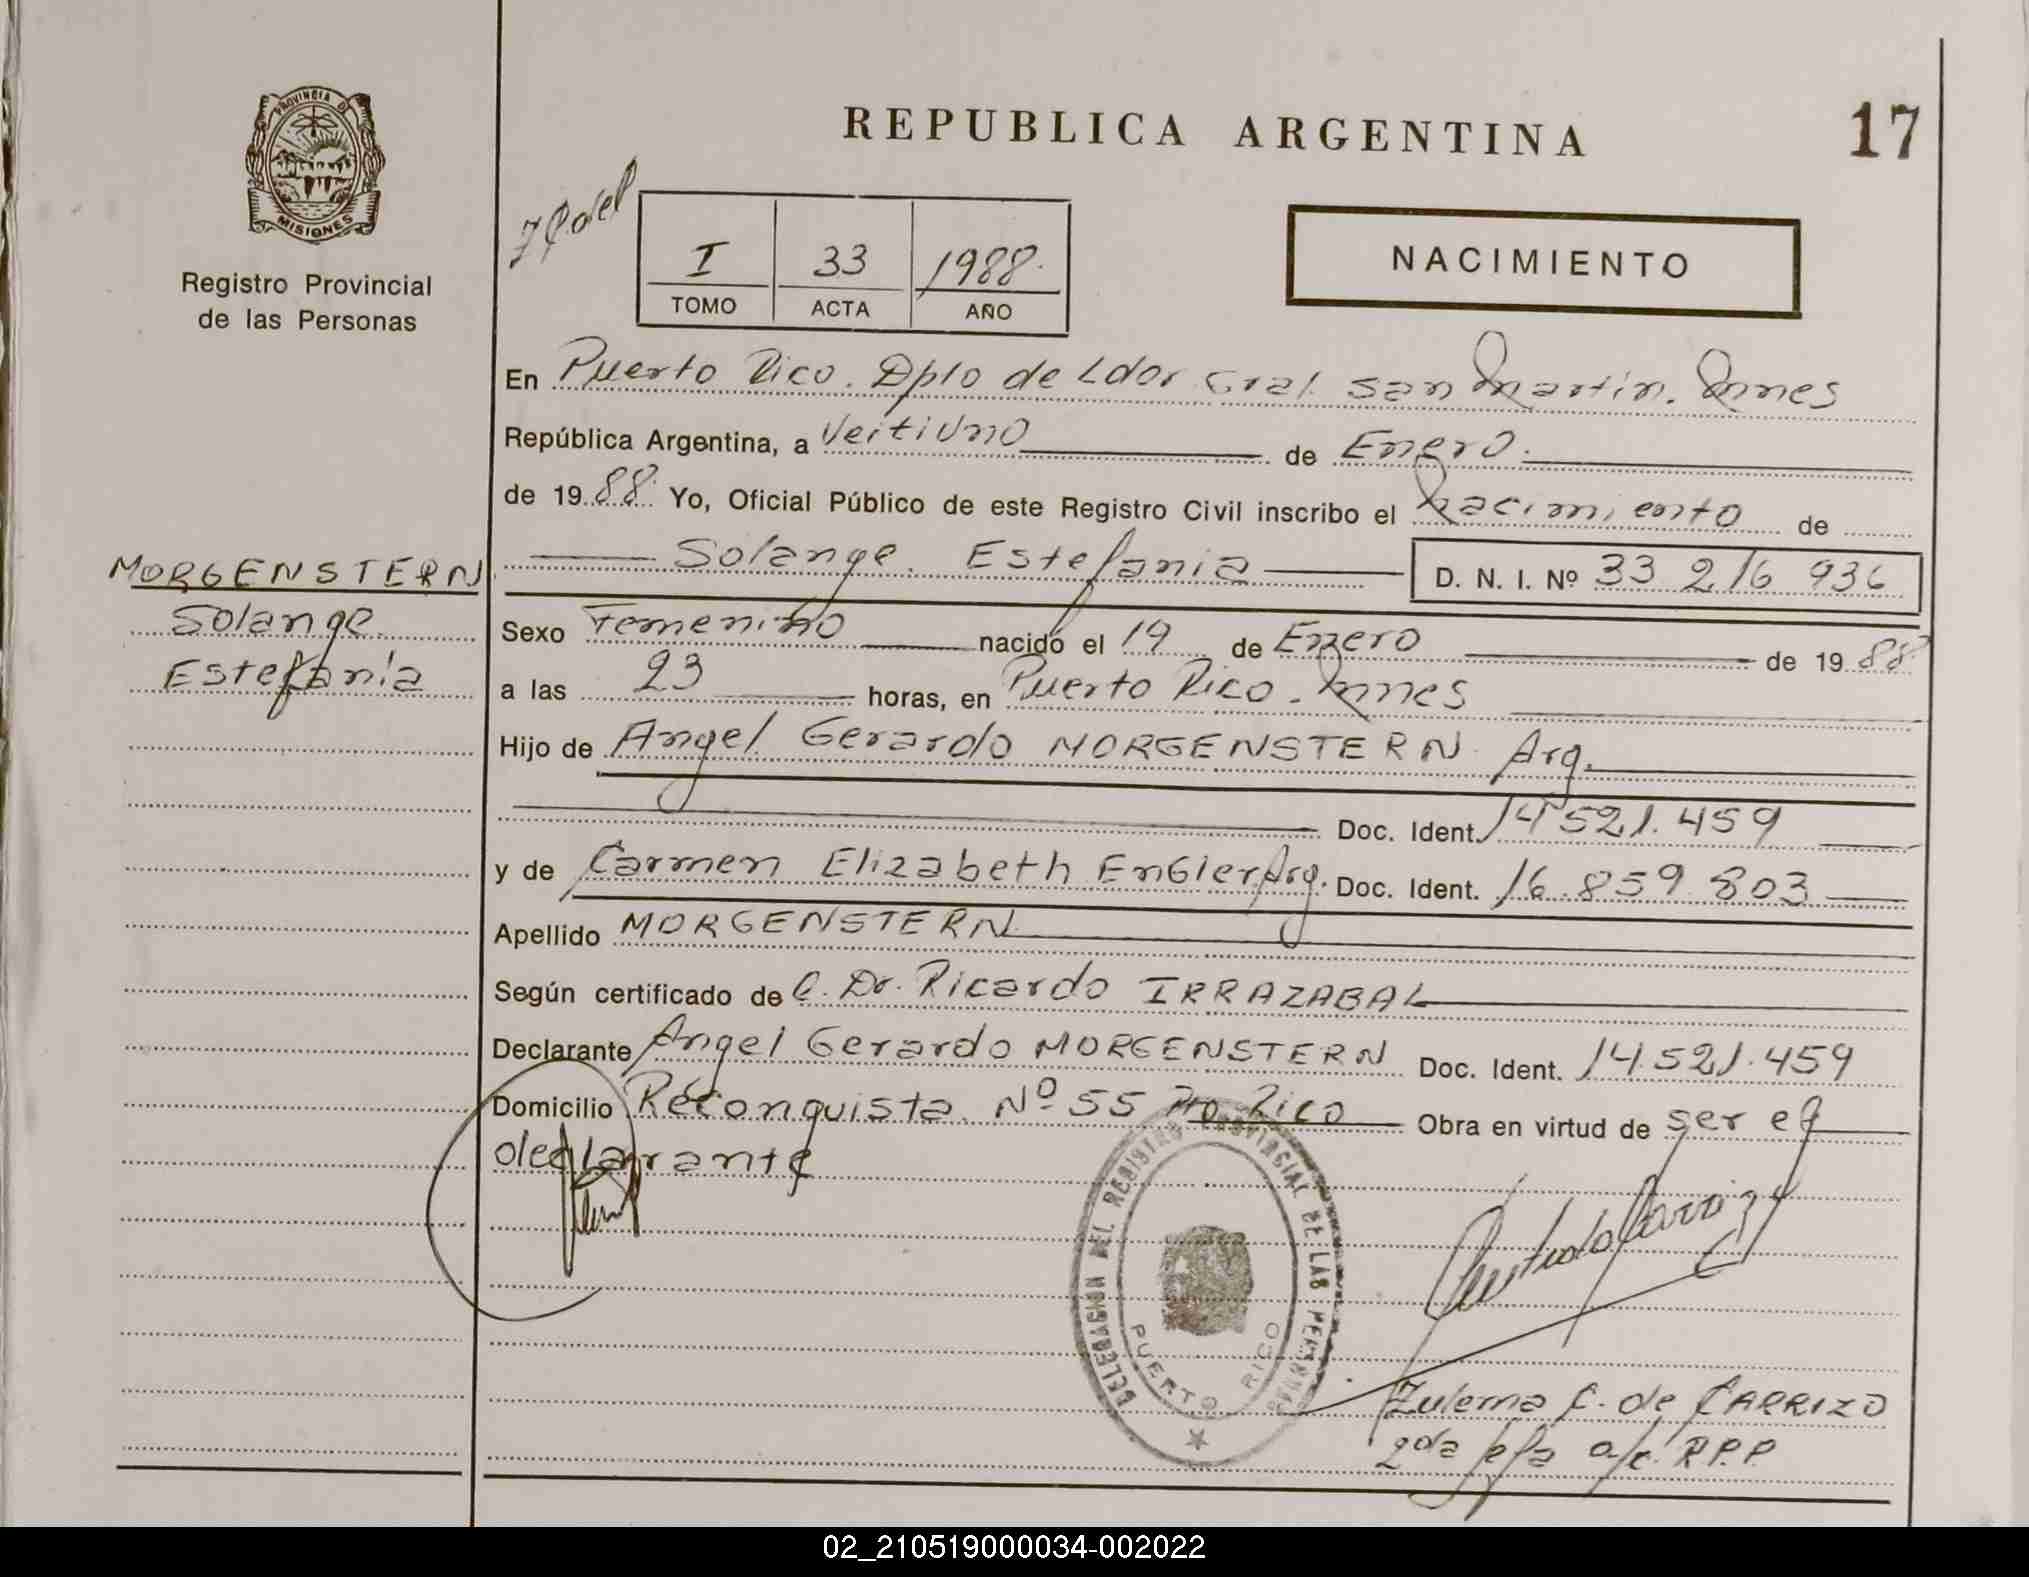 REPUBLICA ARGENTINA
17
PROVINCIA D
MISIONES
Registro Provincial
de las Personas
I 33 1988.
TOMO ACTA AÑO
NACIMIENTO
En Puerto Rico. Dpto de Ldor Gral. San Martin. Mnes
República Argentina, a Veitiuno de Enero.
de 1988. Yo, Oficial Público de este Registro Civil inscribo el Nacimiento de
Solange Estefania D. N. I. Nº 33 216 936
MORGENSTERN
Solange
Estefanía
Sexo Femenino nacido el 19 de Enero de 1988
a las 23 horas, en Puerto Rico. Mnes
Hijo de Angel Gerardo MORGENSTERN Arg.
Doc. Ident. 14521.459
y de Carmen Elizabeth Engler Arg. Doc. Ident. 16.859.803
Apellido MORGENSTERN
Según certificado de Dr. Ricardo IRRAZABAL
Declarante Angel Gerardo MORGENSTERN Doc. Ident. 14.521.459
Domicilio Reconquista Nº 55 Pto Rico Obra en virtud de ser el
declarante
DELEGACION DEL REGISTRO PROVINCIAL DE LAS PERSONAS
PUERTO RICO
Zulema C. de CARRIZO
2da Jefa a/c. R.P.P
02_210519000034-002022